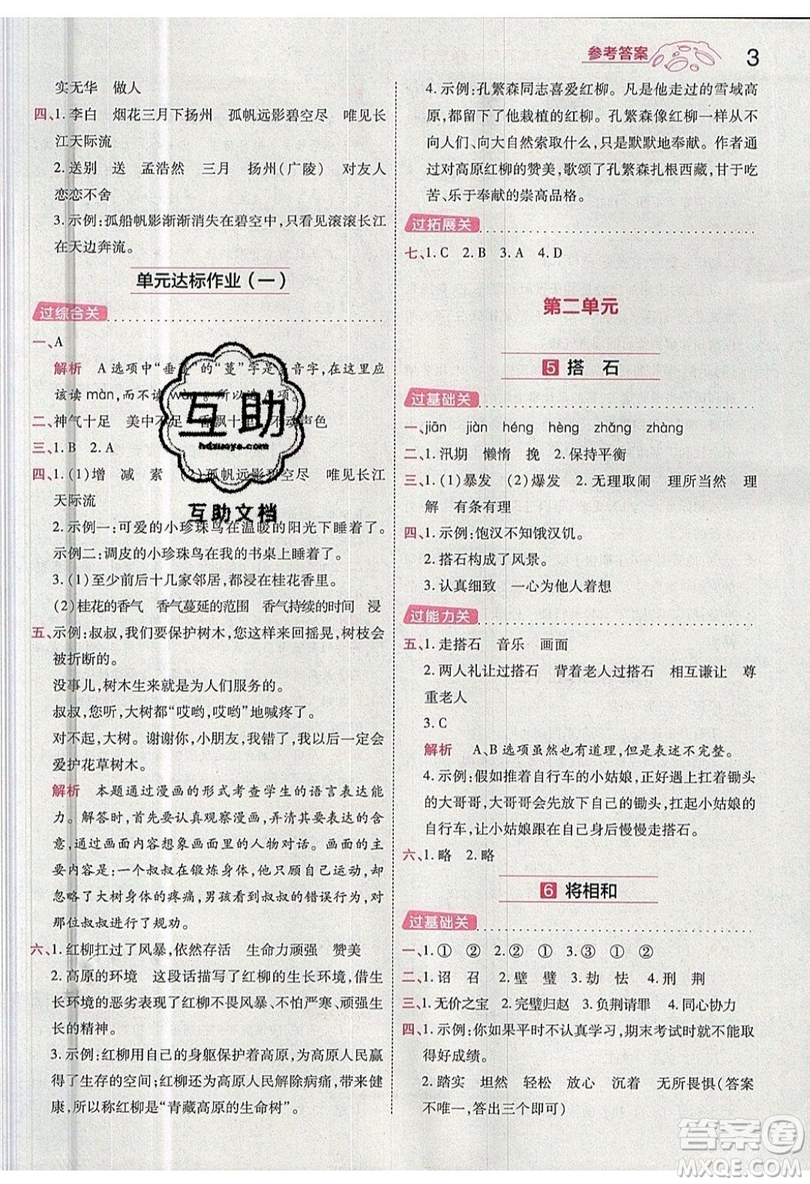 参考答案
3
实无华 做人
四、1. 李白 烟花三月下扬州 孤帆远影碧空尽 唯见长
江天际流
2. 送别 送 孟浩然 三月 扬州(广陵) 对友人
恋恋不舍
3. 示例:孤船帆影渐渐消失在碧空中,只看见滚滚长江
在天边奔流。
单元达标作业(一)
过综合关
一、A
解析 A 选项中“垂
的“蔓”字是
音字,在这里应
该读 màn,而不读
二、神气十足 美中不足
不动声色
三、1. B 2. A
四、1. (1)增 减 素 (2)孤帆远影碧空尽 唯见长江
天际流
2. 示例一:可爱的小珍珠鸟在温暖的阳光下睡着了。
示例二:调皮的小珍珠鸟在我的书桌上睡着了。
3. (1)至少前后十几家邻居,浸在桂花香里。
(2)桂花的香气 香气蔓延的范围 香气持续的时间 浸
五、示例:叔叔,我们要保护树木,您来回摇晃,树枝会
被折断的。
没事儿,树木生来就是为人们服务的。
叔叔,您听,大树“哎哟,哎哟”地喊疼了。
对不起,大树。谢谢你,小朋友,我错了,我们都要
爱护花草树木。
解析 本题通过漫画的形式考查学生的语言表达能
力。解答时,首先要认真观察漫画,发现漫画中的主要
内容,然后想象画面里的人物对话。画面的主要内
容是:一个叔叔在锻炼身体,他只顾自己运动,却
忽略了大树的疼痛,男孩看到叔叔的错误行为,对
那位叔叔进行了规劝。
六、1. 红柳扛过了风暴,依然存活 生命力顽强 赞美
2. 高原的环境 这段话描写了红柳的生长环境,用
环境的恶劣表现了红柳不畏风暴、不惧环境顽强生
长的精神。
3. 示例:红柳用自己的身躯保护着高原,为高原人民赢
得了生存的空间;红柳为高原人民解除病痛,带来温暖,
所以称红柳是“青藏高原的生命树”。
4. 示例:孔繁森同志喜爱红柳。凡是他走过的雪域高
原,都有他栽植的红柳。孔繁森像红柳一样从不
向人们、向大自然索取什么,只是默默地奉献。作者通
过对高原红柳的赞美,歌颂了孔繁森扎根西藏,甘于吃
苦、乐于奉献的崇高品格。
过拓展关
七、1. C 2. B 3. A 4. D
第二单元
5 搭 石
过基础关
一、jiān jiàn héng hèng zhǎng zhàng
二、1. 汛期 懒惰 挽 2. 保持平衡
三、1. (1)暴发 (2)爆发 2. 无理取闹 理所当然 理
解 有条有理
四、1. 示例:饱汉不知饿汉饥。
2. 搭石构成了风景。
3. 认真细致 一心为他人着想
过能力关
五、1. 走搭石 音乐 画面
2. 两人礼让过搭石 背着老人过搭石 相互谦让 尊
重老人
3. C
解析 A、B 选项虽然也有道理,但表述不完整。
4. 示例:假如推着自行车的小姑娘,碰上扛着锄头的
大哥哥,大哥哥会先放下锄头,扛起小姑娘的自
行车,让小姑娘跟在自己身后慢慢走搭石。
六、1. 略 2. 略
6 将相和
过基础关
一、1. ① ② 2. ② ① 3. ③ ① ② ①
二、1. 诏 召 2. 壁 璧 3. 劫 怯 4. 刑 荆
三、1. 无价之宝 2. 完璧归赵 3. 负荆请罪 4. 同心协力
四、1. 示例:你如果平时不认真学习,期末考试时就很难获
得好成绩。
2. 踏实 坦然 轻松 放心 沉着 无所畏惧(答案
不唯一,答出三个即可)
互助
hdzuoye.com
互助文档
答案圈
MXQE.COM